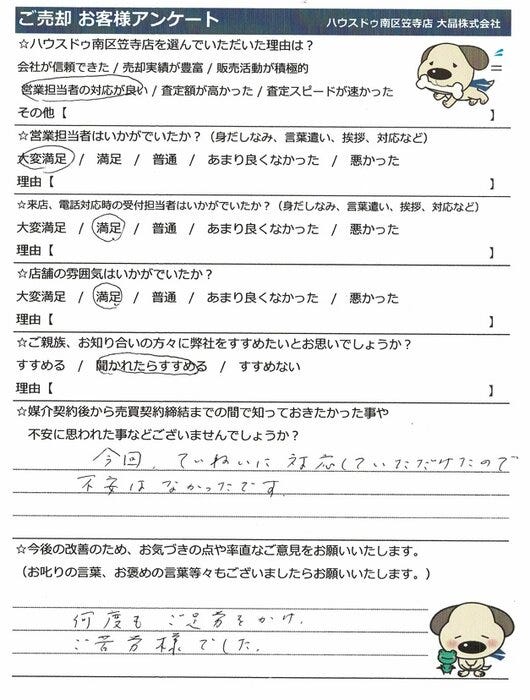 ご売却 お客様アンケート ハウスドゥ南区笠寺店 大品株式会社
☆ハウスドゥ南区笠寺店を選んでいただいた理由は?
会社が信頼できた / 売却実績が豊富 / 販売活動が積極的
営業担当者の対応が良い / 査定額が高かった / 査定スピードが速かった
その他【 】
☆営業担当者はいかがでいたか?(身だしなみ、言葉遣い、挨拶、対応など)
大変満足 / 満足 / 普通 / あまり良くなかった / 悪かった
理由【 】
☆来店、電話対応時の受付担当者はいかがでいたか?(身だしなみ、言葉遣い、挨拶、対応など)
大変満足 / 満足 / 普通 / あまり良くなかった / 悪かった
理由【 】
☆店舗の雰囲気はいかがでいたか?
大変満足 / 満足 / 普通 / あまり良くなかった / 悪かった
理由【 】
☆ご親族、お知り合いの方々に弊社をすすめたいとお思いでしょうか?
すすめる / 聞かれたらすすめる / すすめない
理由【 】
☆媒介契約後から売買契約締結までの間で知っておきたかった事や
不安に思われた事などございませんでしょうか?
今回、ていねいに対応していただけたので
不安はなかったです
☆今後の改善のため、お気づきの点や率直なご意見をお願いいたします。
(お叱りの言葉、お褒めの言葉等々もございましたらお願いいたします。)
何度もご足労をかけ、
ご苦労様でした。